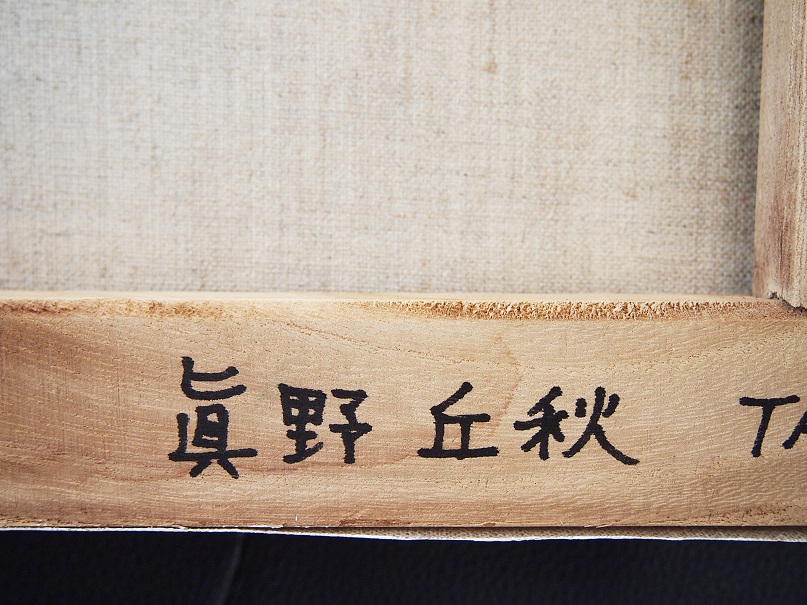 眞野 丘秋 TA